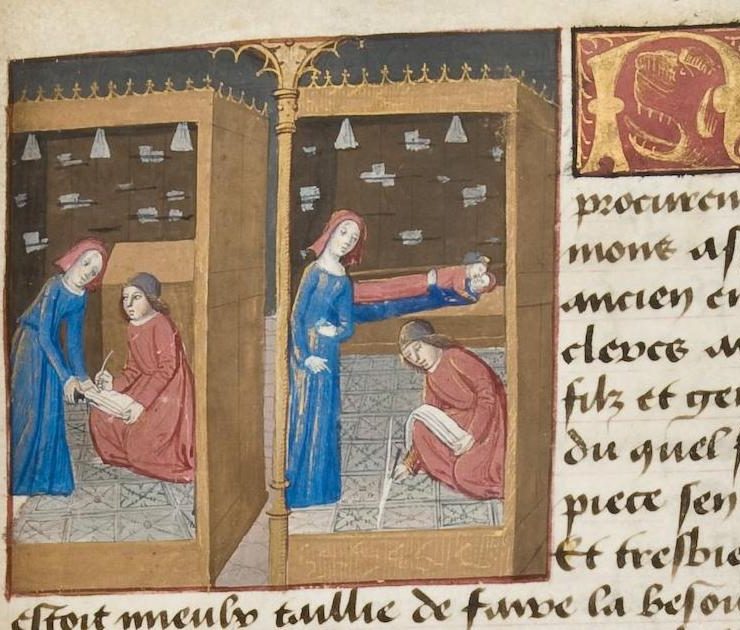 procureu
mont as
ancien
clercs
filz et gen
du quel
piece sen
Et tresbie
estoit mieulx taillie de faire la besou